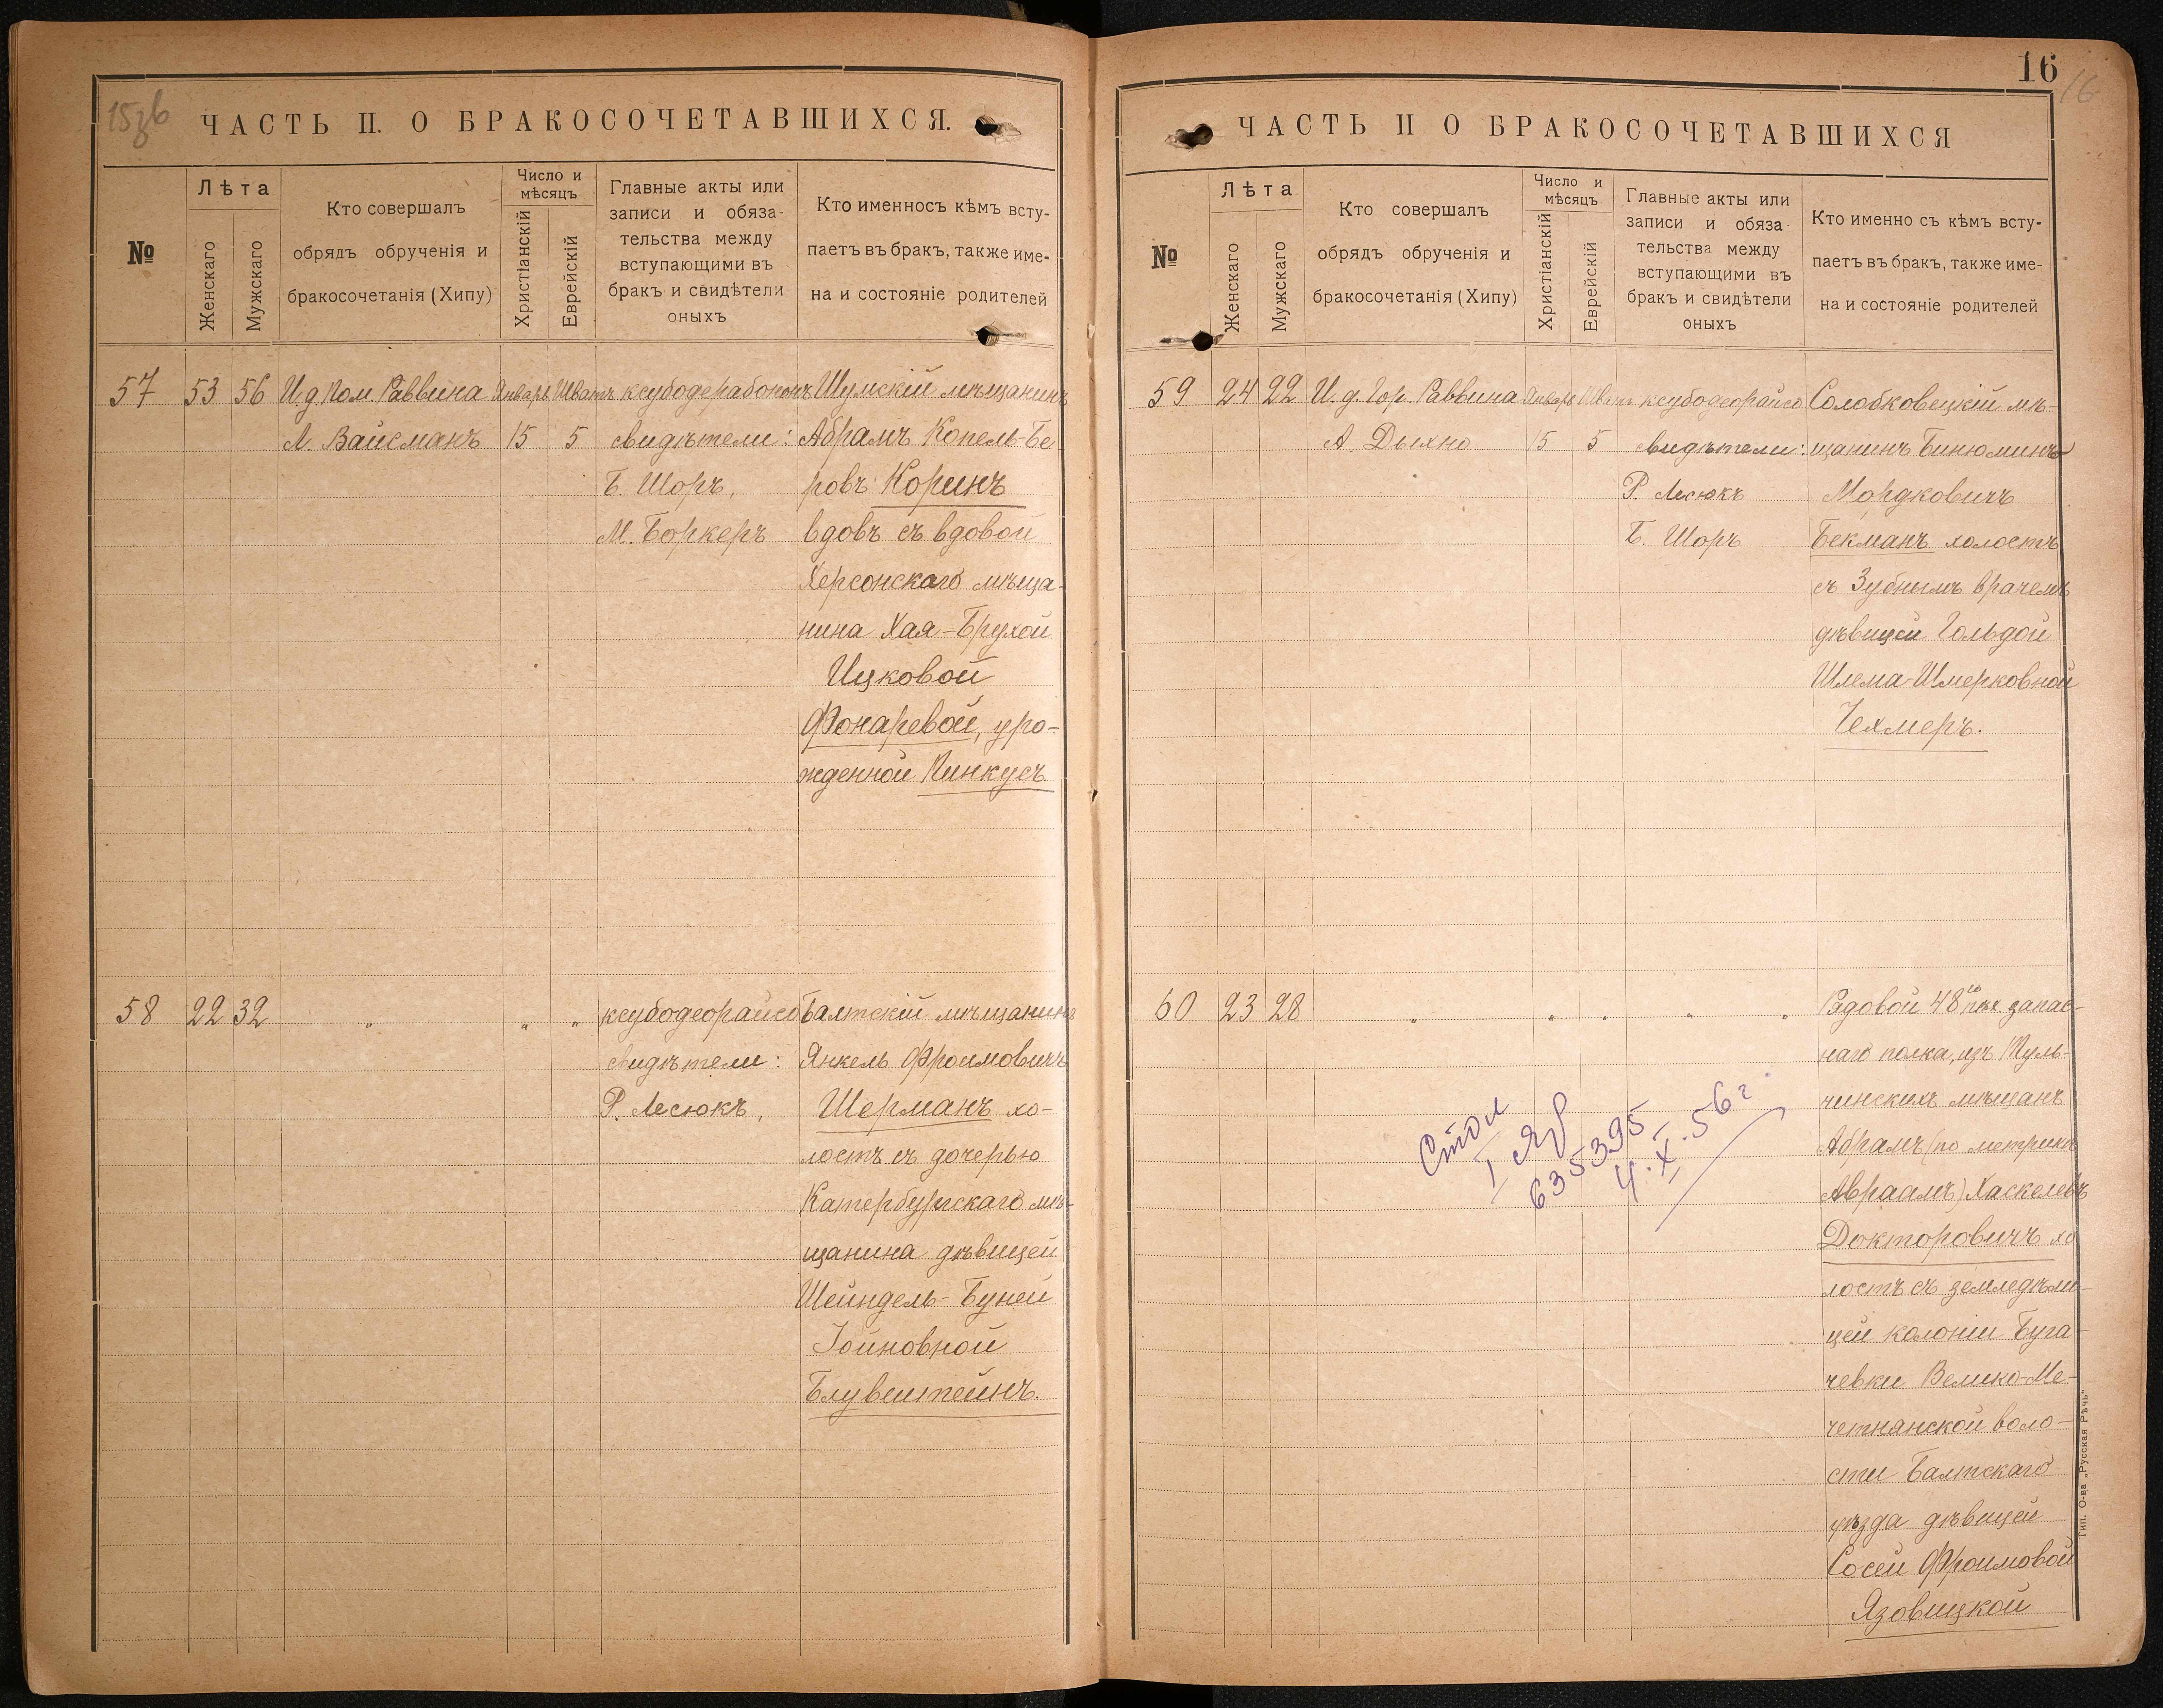 15зб
ЧАСТЬ II. О БРАКОСОЧЕТАВШИХСЯ.
№
Лѣта
Женскаго
Мужскаго
Кто совершалъ
обрядъ обрученія и
бракосочетанія (Хипу)
Число и
мѣсяцъ
Христіанскій
Еврейскій
Главные акты или
записи и обяза-
тельства между
вступающими въ
бракъ и свидѣтели
оныхъ
Кто именносъ кѣмъ всту-
паетъ въ бракъ, также име-
на и состояніе родителей
57 53 56 И.д Пом. Раввина Январь Шватъ ксубодерабононъ Шумскій мѣщанинъ
Л. Вайсманъ 15 5 свидѣтели: Абрамъ Копель-Бе
Б. Шоръ, ровъ Коринъ
М. Боркеръ вдовъ съ вдовой
Херсонскаго мѣща-
нина Хая-Брухой
Ицковой
Фонаревой, уро-
жденной Пинкусъ
58 22 32 " " " ксубодеорайсо Балтскій мѣщанинъ
свидѣтели: Янкель Фроимовичъ
Р. Лесюкъ, Шерманъ хо-
лостъ съ дочерью
Катербургскаго мѣ-
щанина дѣвицей
Шейндель-Буней
Іойновной
Блувштейнъ.
16
16
ЧАСТЬ II О БРАКОСОЧЕТАВШИХСЯ
№
Лѣта
Женскаго
Мужскаго
Кто совершалъ
обрядъ обрученія и
бракосочетанія (Хипу)
Число и
мѣсяцъ
Христіанскій
Еврейскій
Главные акты или
записи и обяза
тельства между
вступающими въ
бракъ и свидѣтели
оныхъ
Кто именно съ кѣмъ всту-
паетъ въ бракъ, также име-
на и состояніе родителей
59 24 22 И.д. Гор. Раввина Январь Шватъ ксубодеорайсо Солобковецкій мѣ-
А. Дыхно 15 5 свидѣтели: щанинъ Бинюминъ
Р. Лесюкъ Мордковичъ
Б. Шоръ Бекманъ холостъ
съ Зубнымъ врачемъ
дѣвицей Гольдой
Шлема-Шмерковной
Чехмеръ.
60 23 28 " " " " " Рядовой 48го пѣх запас-
наго полка, изъ Туль-
чинскихъ мѣщанъ
Абрамъ (по метрикѣ
Авраамъ) Хаскелевъ
Докторовичъ хо
лостъ съ земледѣли-
цей колоніи Буга-
чевки Велико-Ме-
четнянской воло-
сти Балтскаго
уѣзда дѣвицей
Сосей Фроимовой
Язовицкой
Стол
635395
4.XI.56 г.
Тип. О-ва „Русская Рѣчь“